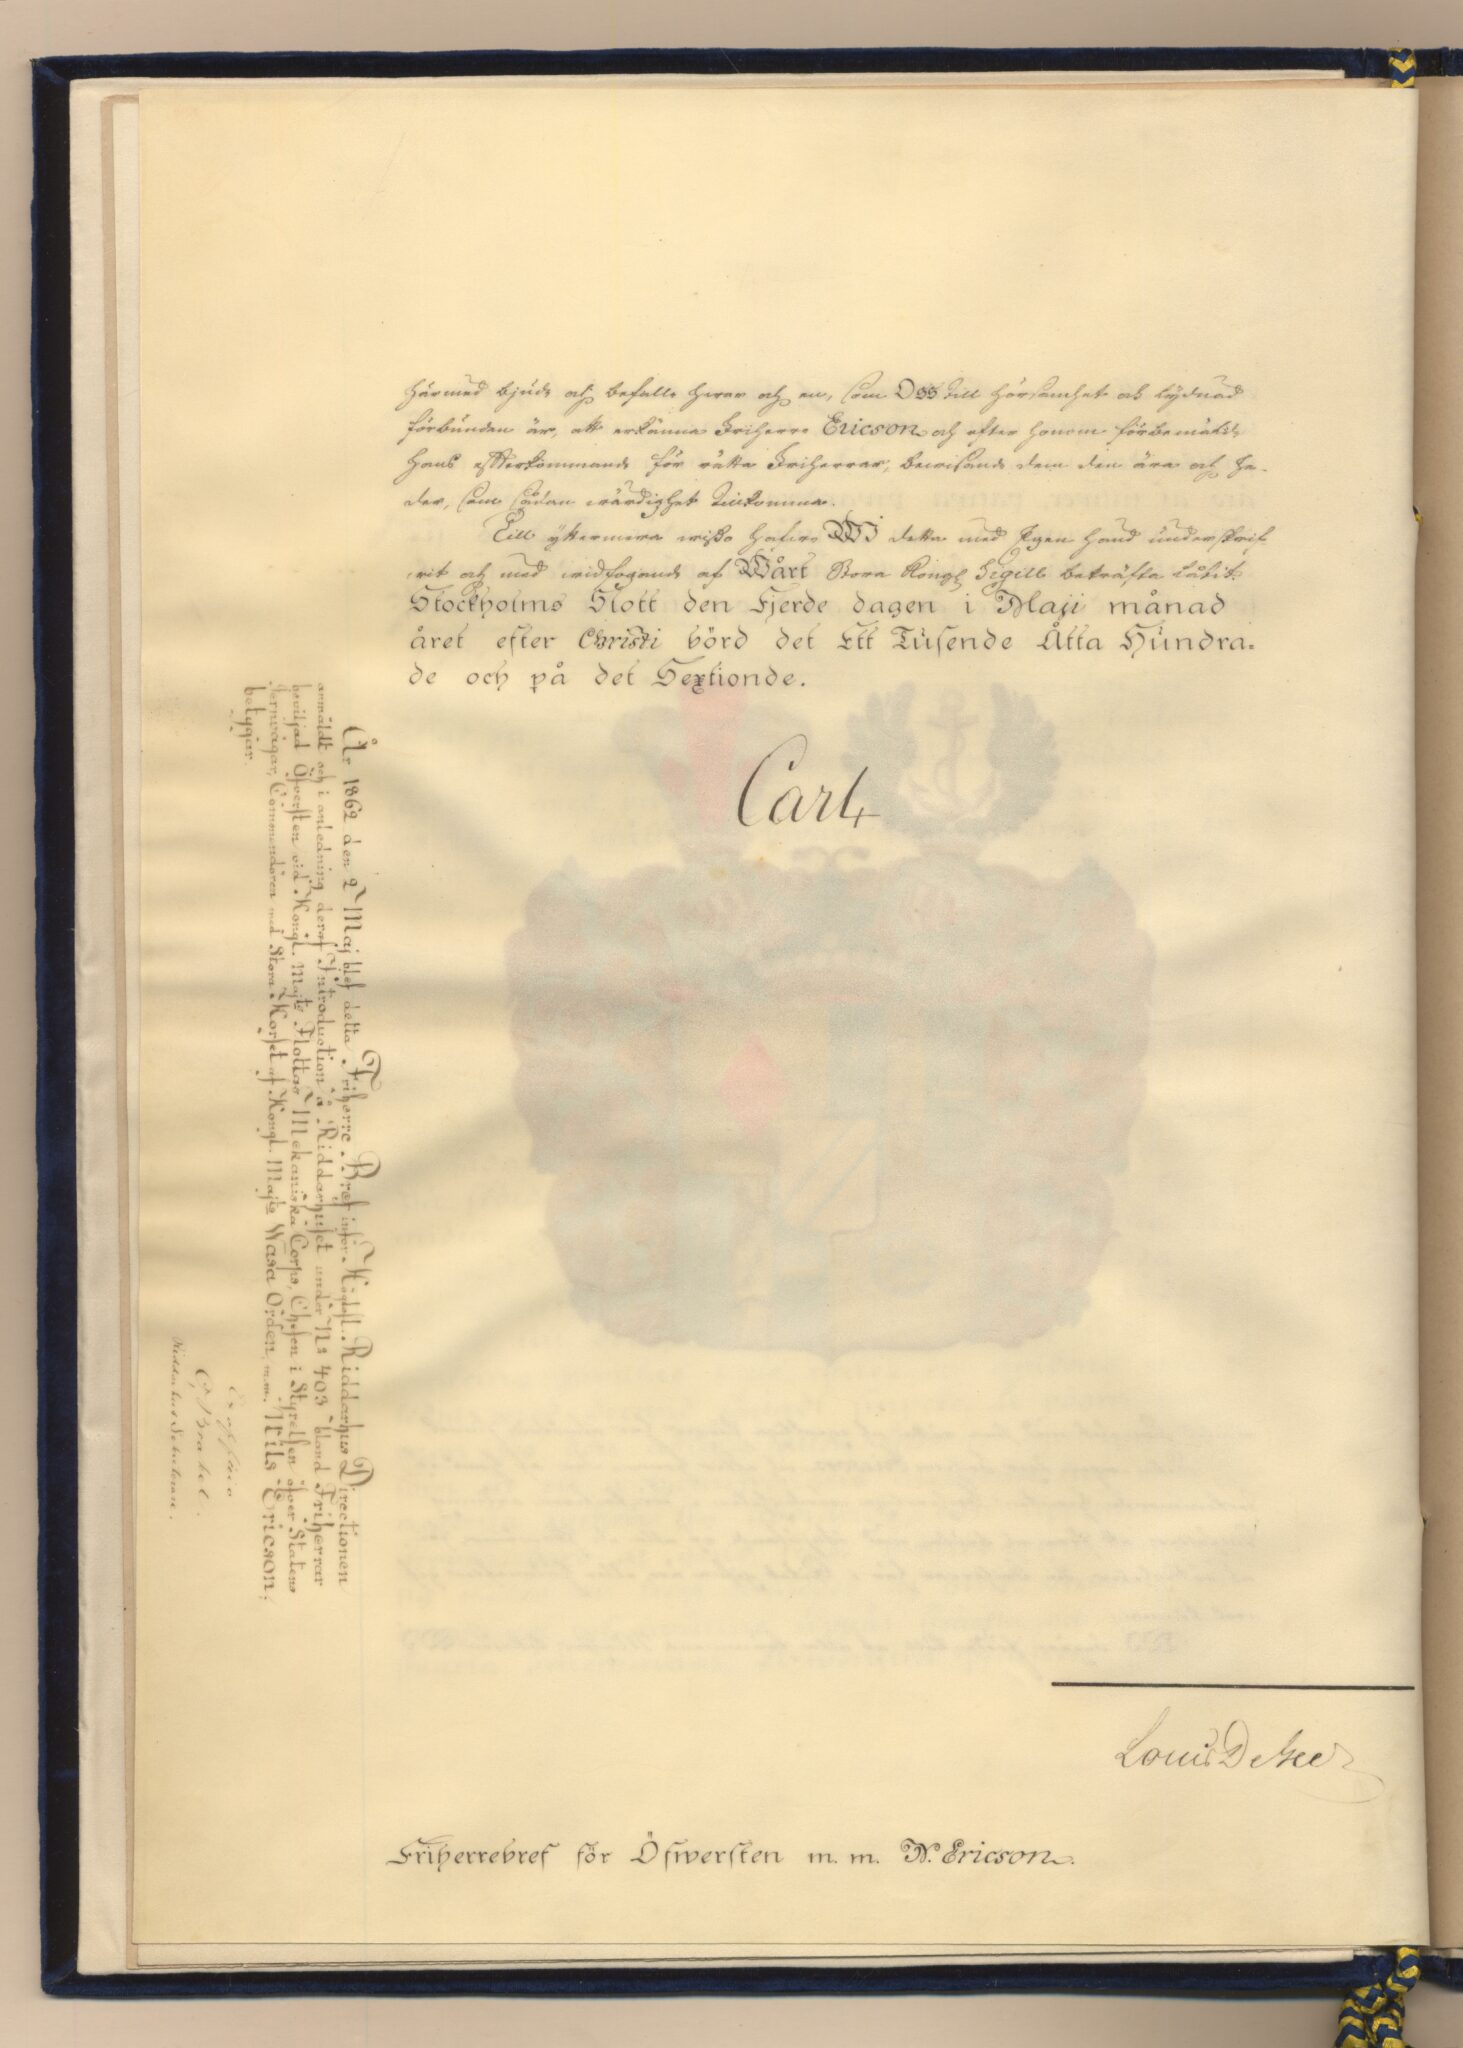 härmed bjude och befalle hwar och en, som Oss till hörsamhet och lydnad
förbunden är, att erkänna Friherre Ericson och efter honom förbemälde
hans efterkommande för rätta Friherrar, bewisande dem den ära och he-
der, som sådan wärdighet tillkomma.
Till yttermera wisso hafwe Wi detta med Egen hand underskrif
wit och med widfogande af Wårt Stora Kongl Sigill bekräfta låtit.
Stockholms Slott den Fjerde dagen i Maji månad
året efter Christi börd det Ett Tusende Åtta Hundra-
de och på det Sextionde.
Carl
Louis De Geer
Friherrebref för Öfwersten m. m. N. Ericson.
År 1862 den 2 Maj blef detta Friherre Bref inför Högloft. Riddarhus Directionen
anmäldt och i anledning deraf Introduction å Riddarhuset under No 403 bland Friherrar
beviljad Öfversten vid Kongl. Majts Flottas Mekaniska Corps, Chefen i Styrelsen öfver Statens
Jernvägar, Commendören med Stora Korset af Kongl. Majts Wasa Orden, m.m. Nils Ericson;
betygar.
Ex officio
Riddarhus Sekreterare.